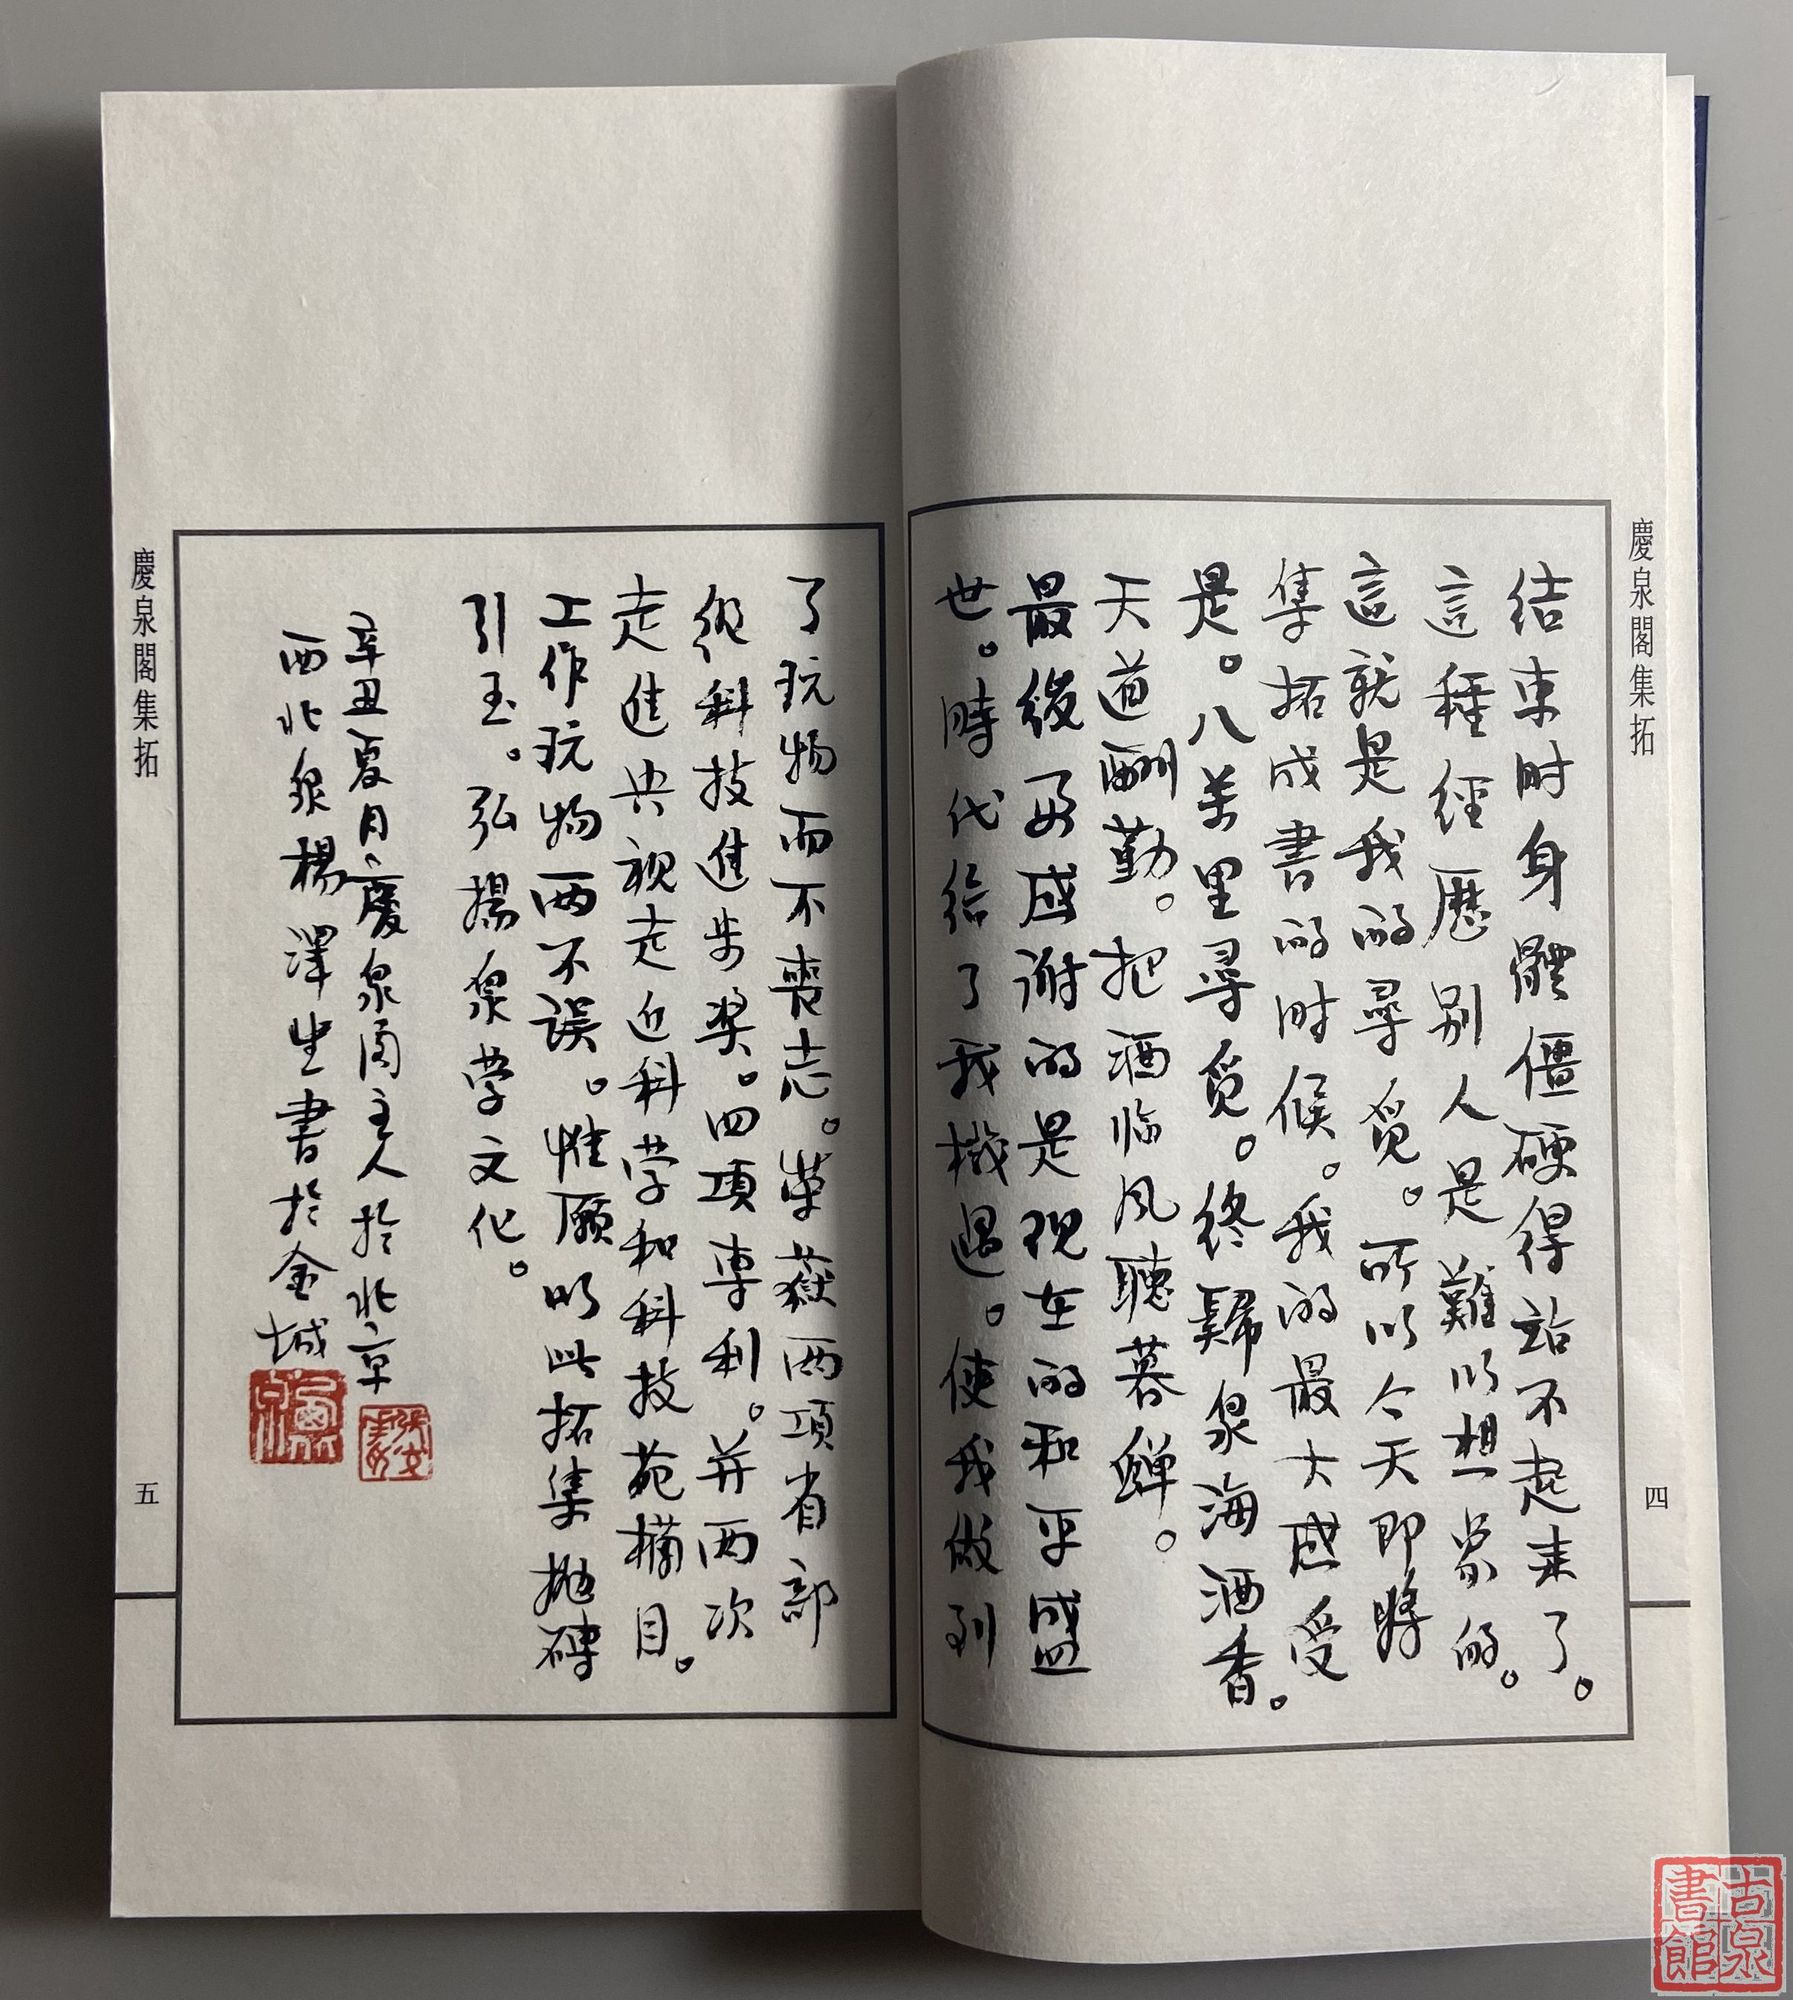 慶泉閣集拓
四
结束时身體僵硬得站不起来了。
這種經歷别人是難以想象的。
這就是我的尋覓。所以今天即将
集拓成書的时候。我的最大感受
是。八万里尋覓。终歸泉海酒香。
天道酬勤。把酒临风聽暮蝉。
最後要感谢的是现在的和平盛
世。時代给了我機遇。使我做到
了玩物而不喪志。荣获两項省部
级科技進步奖。四項専利。并两次
走進央视走近科学和科技苑欄目。
工作玩物两不误。惟願以此拓集抛磚
引玉。弘揚泉学文化。
辛丑夏月慶泉阁主人於北京
西北泉楊澤生書於金城
慶泉閣集拓
五
古泉書館